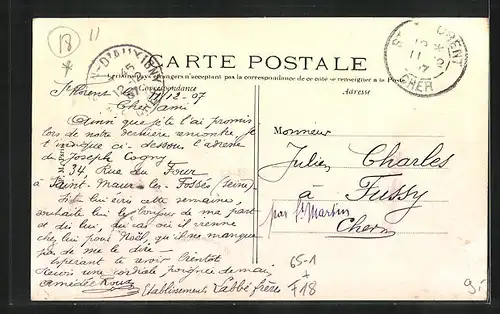 18
11
CARTE POSTALE
Certains Pays étrangers n'acceptant pas la correspondance de ce côté se renseigner à la Poste
Correspondance
Adresse
St Florent 11/12-07
Cher Ami
Ainsi que je te l'ai promis
lors de notre dernière rencontre, je
t'indique ici-dessous l'adresse
de Joseph Cogny
34, Rue du Four
à Saint-Maur-les-Fossés (Seine)
Si tu lui écris cette semaine,
souhaite lui le bonjour de ma part
et dis lui, au cas où il vienne
chez lui pour Noël, qu'il ne manque
pas de me le dire.
Espérant te voir bientôt
Reçois une cordiale poignée de main
Amédée
Etablissements Labbé frères
Monsieur
Julien Charles
à Fussy
par St Martin
Cher
65-1
+
F18
CHER